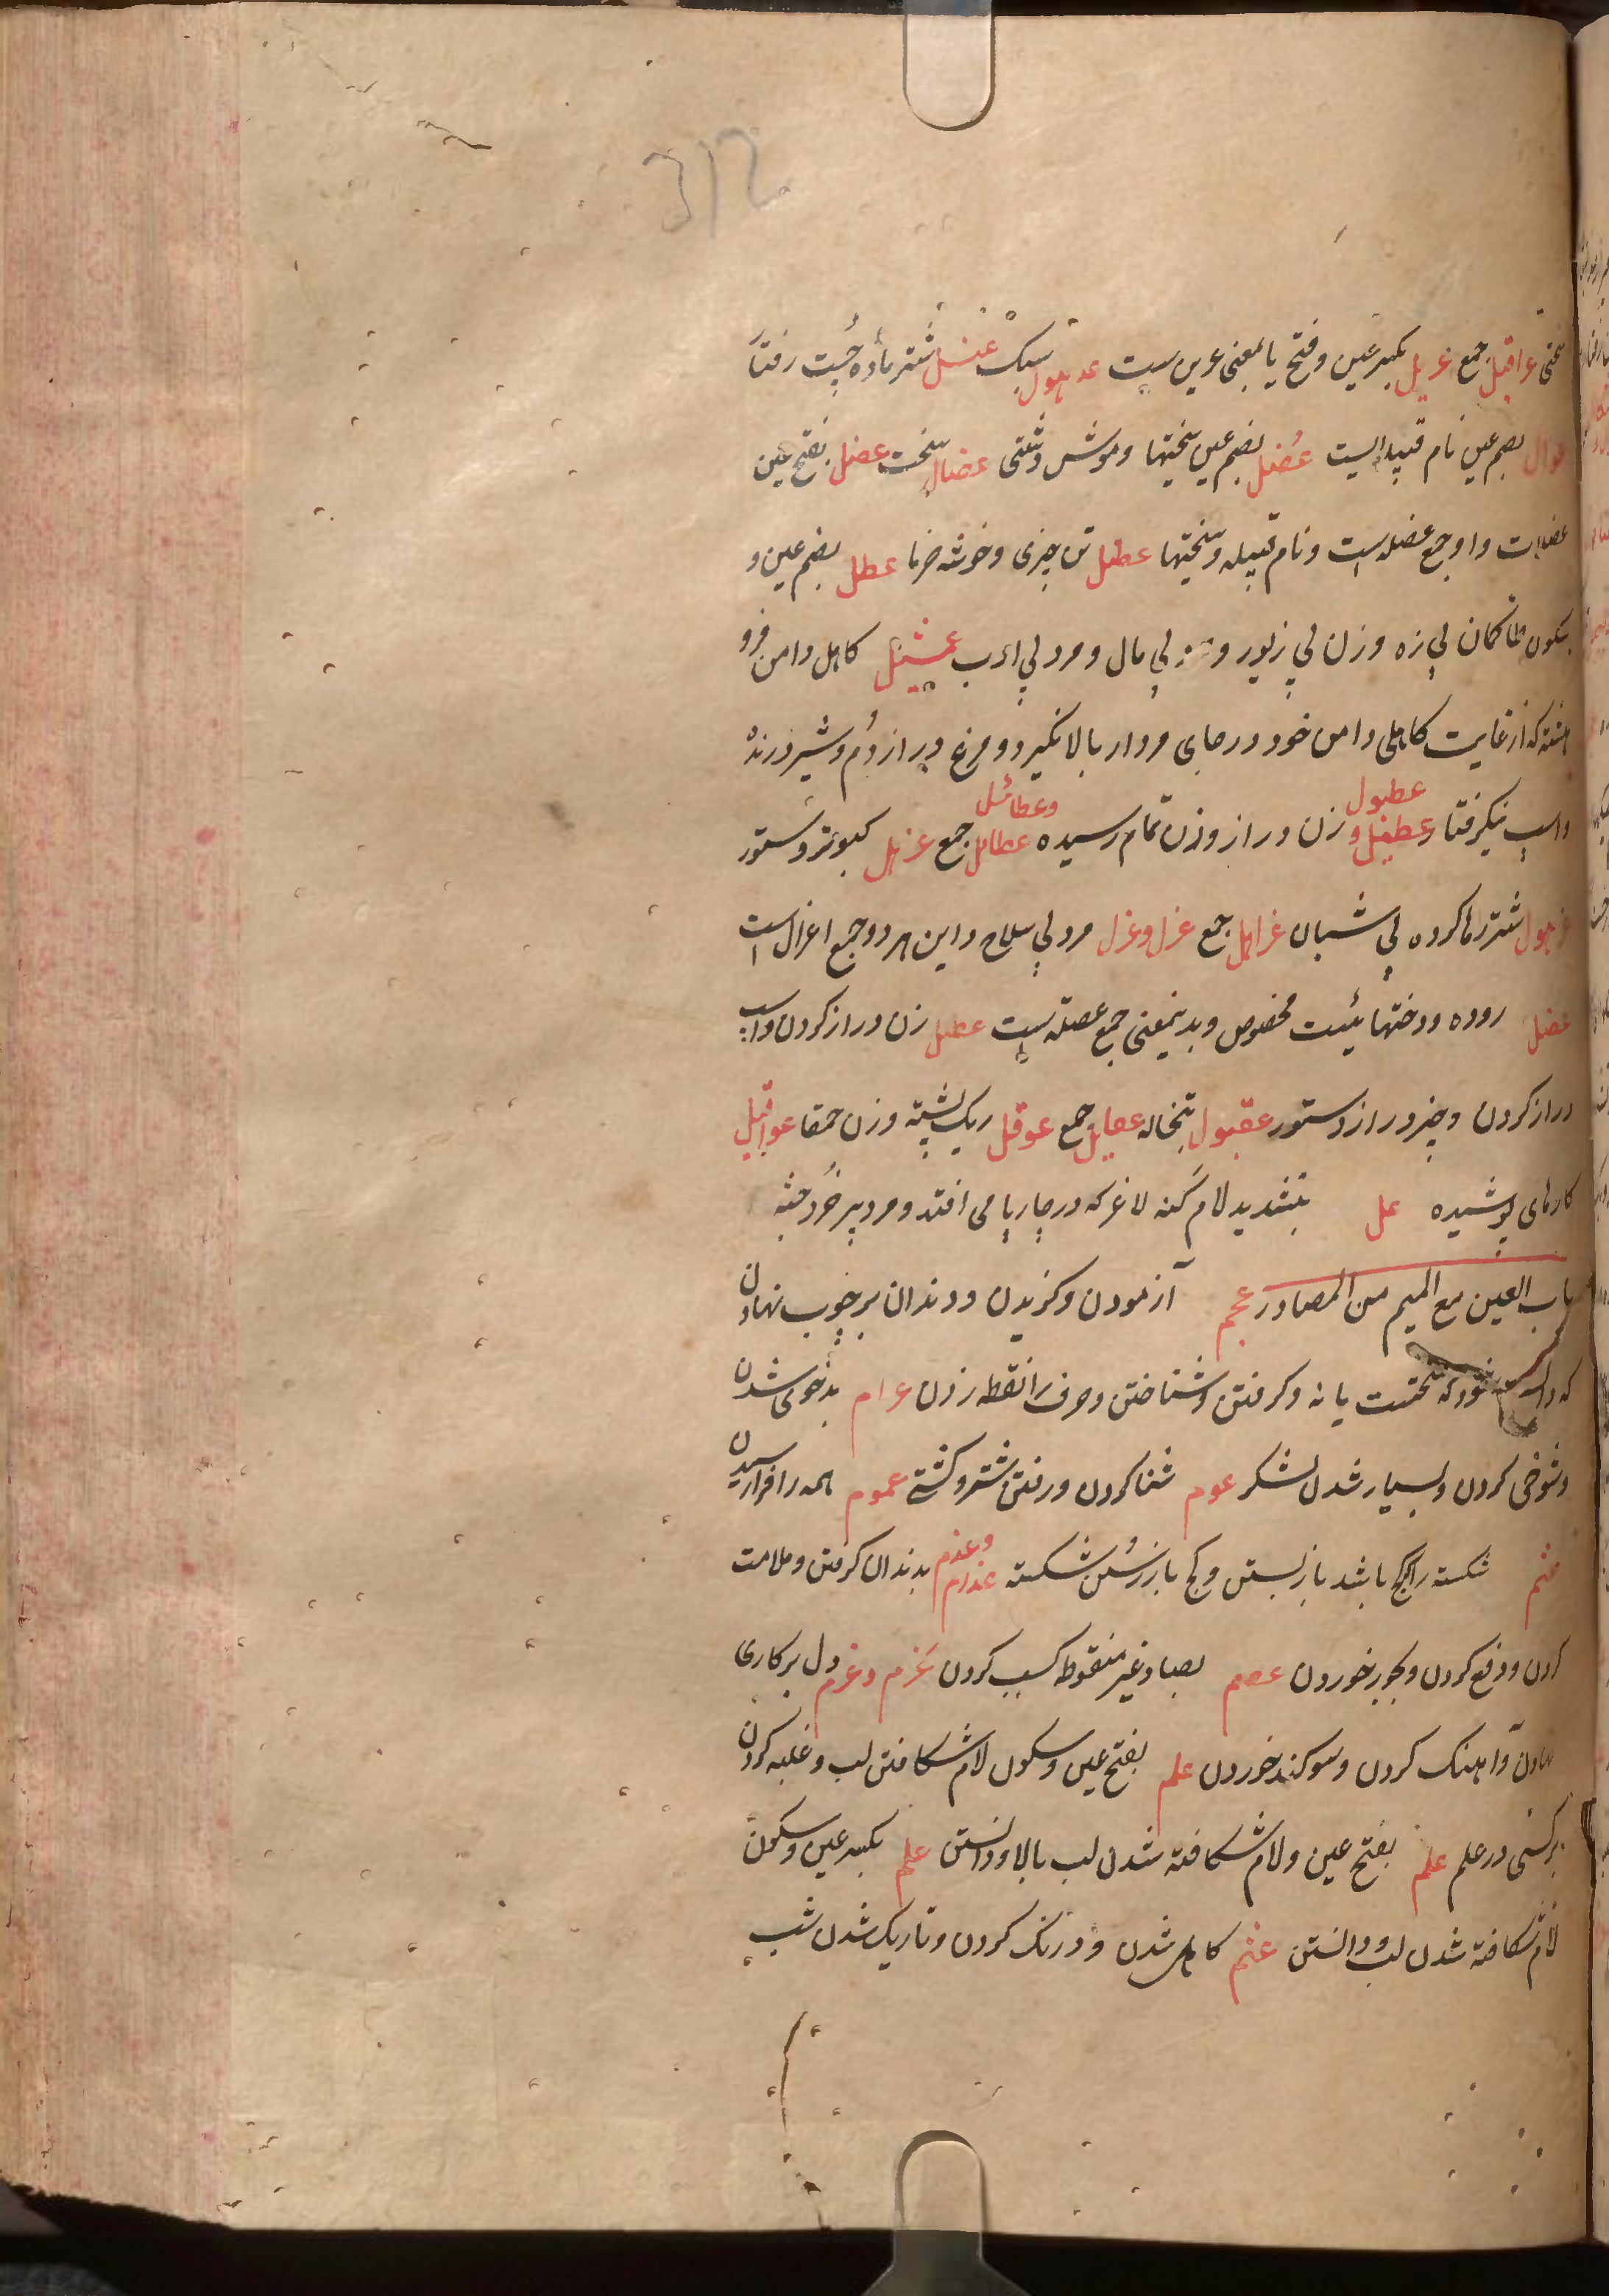 312
سختی عراقیل جمع عریل بکسر عین و فتح یا بمعنی عرین ست عدهول سبک عنسل شتر ماده چست رفتار
بضم عین نام قبیله ایست عُضل بضم عین سختیها و موش دشتی عضال سخت عضل بفتح عین
عضلات واو جمع عضله است و نام قبیله و سختیها عطل تن چیزی و خوشه خرما عطل بضم عین و
سکون طا کمان بی زه و زن بی زیور و بی مال و مرد بی ادب عثیل کاهل دامن فرو
هشته که از غایت کاهلی دامن خود در جای مردار بالا نگیرد و مرغ دراز دُم و شیر درنده
واسب نیکرفتار عطبل و عطبول زن دراز و زن تمام رسیده عطابل وعطابیل جمع عزهل کبوتر و ستور
شتر رها کرده بی شبان عزاهل جمع عزل و عزل مرد بی سلاح و این هر دو جمع اعزل است
عضل روده و درختهائیست مخصوص و بدینمعنی جمع عصله است عطل زن دراز کردن واسب
دراز کردن و چیز دراز و ستور عقبول تبخاله عقابل جمع عوقل ریک پشته و زن حمقا عواقیل
کارهای پوشیده عل بتشدید لام کنه لاغر که در چارپا می افتد و مرد پیر خُرد جثه
باب العین مع المیم من المصادر عجم آزمودن و کزیدن و دندان بر چوب نهادن
که دانسته شود که سختست یا نه و کرفتن و شناختن و حرف را نقطه زدن عرام بدخوی شدن
و شوخی کردن و بسیار شدن لشکر عوم شنا کردن و رفتن شتر و کشتی عموم همه را فرا رسیدن
عثم شکسته را کج باشد باز بستن و کج باز رُستن شکسته عذرم وعذم بدندان کرفتن و ملامت
کردن و دفع کردن و بجور خوردن عصم بصاد غیر منقوط کسب کردن عَزم وعزم دل بر کاری
نهادن و آهنک کردن و سوکند خوردن علم بفتح عین و سکون لام شکافتن لب و غلبه کردن
بر کسی در علم علم بفتح عین و لام شکافته شدن لب بالا و دانستن علم بکسر عین و سکون
لام شکافته شدن لب و دانستن عتم کاهل شدن و درنک کردن و تاریک شدن شب